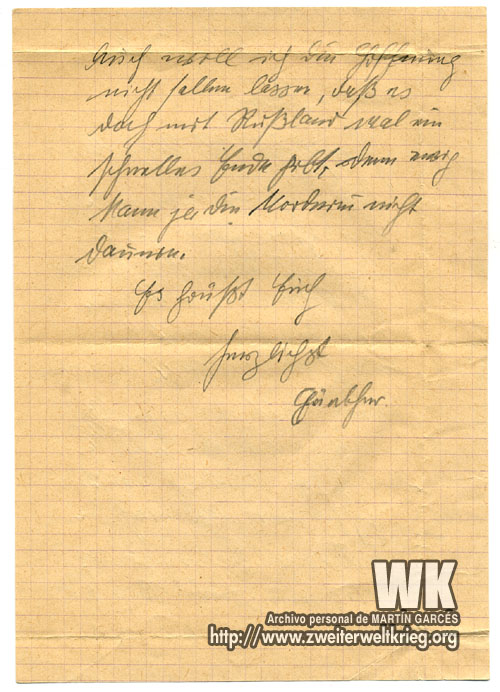 Auch will ich die Hoffnung
nicht fallen lassen, daß es
doch mit Rußland mal ein
schnelles Ende gibt, denn ewig
kann ja die Morderei nicht
dauern.
Es grüßt Euch
herzlichst
Günther.
WK
Archivo personal de MARTÍN GARCÉS
http://www.zweiterweltkrieg.org